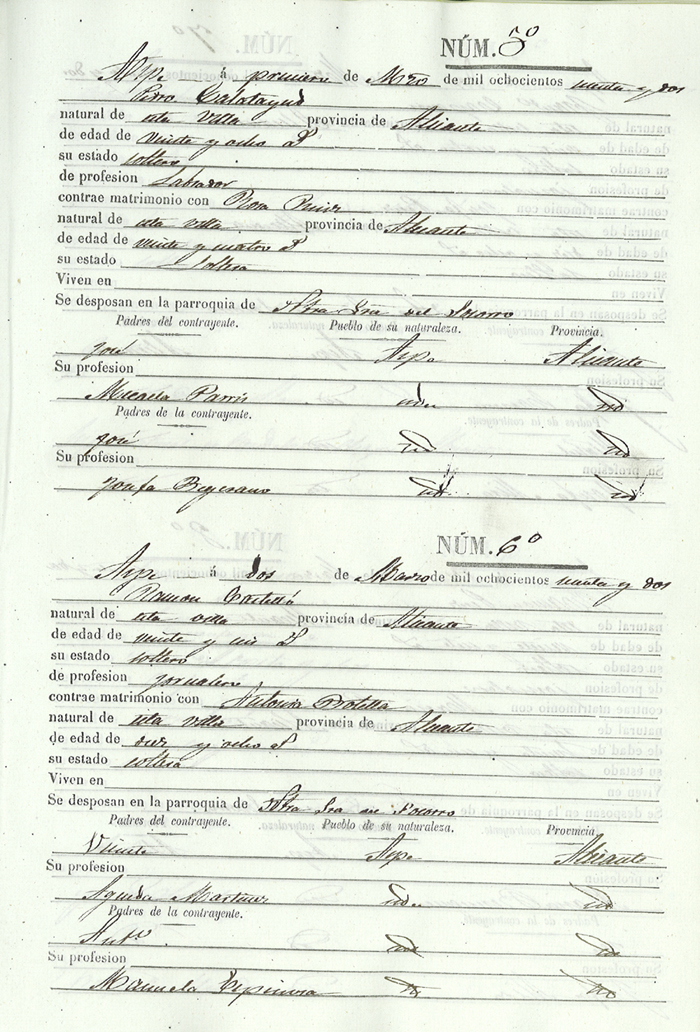 NÚM. 5º
Aspe á primero de Mzo de mil ochocientos y dos
Pedro Calatayud
natural de esta villa provincia de Alicante
de edad de veinte y ocho
su estado soltero
de profesion Labrador
contrae matrimonio con Rosa
natural de esta villa provincia de Alicante
de edad de veinte y cuatro
su estado soltera
Viven en
Se desposan en la parroquia de Ntra Sra del Socorro
Padres del contrayente. Pueblo de su naturaleza. Provincia.
José Aspe Alicante
Su profesion
Micaela id id
Padres de la contrayente.
José id id
Su profesion
Josefa id id
NÚM. 6º
Aspe á dos de Marzo de mil ochocientos y dos
Ramon Castelló
natural de esta villa provincia de Alicante
de edad de veinte y
su estado soltero
de profesion jornalero
contrae matrimonio con Antonia Botella
natural de esta villa provincia de Alicante
de edad de diez y ocho
su estado soltera
Viven en
Se desposan en la parroquia de Ntra Sra del Socorro
Padres del contrayente. Pueblo de su naturaleza. Provincia
Vicente Aspe Alicante
Su profesion
Agueda Martinez id id
Padres de la contrayente.
Antº id id
Su profesion
Manuela Espinosa id id